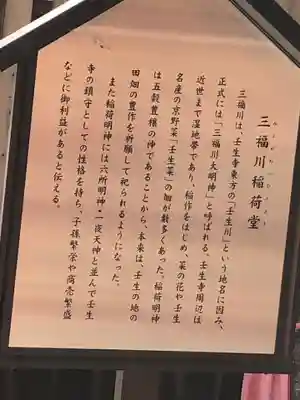 三福川稲荷堂
三福川は、壬生寺東方の「壬生川」という地名に因み、
正式には「三福川大明神」と呼ばれる。壬生寺周辺は
近世まで湿地帯であり、稲作をはじめ、菜の花や壬生
名産の京野菜「壬生菜」の畑が数多くあった。稲荷明神
は五穀豊穣の神であることから、本来は、壬生の地の
田畑の豊作を祈願して祀られるようになった。
また稲荷明神には六所明神・一夜天神と並んで壬生
寺の鎮守としての性格を持ち、子孫繁栄や商売繁盛
などに御利益があると伝える。